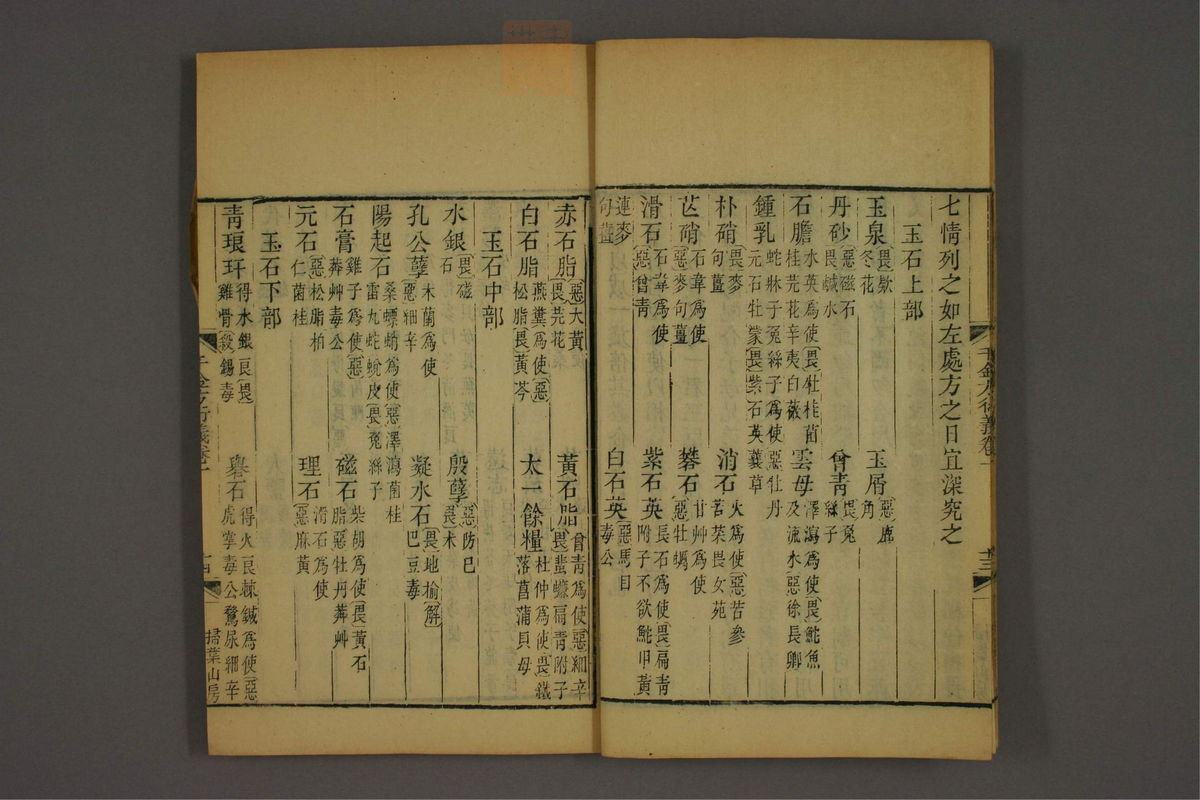 七情列之如左處方之日宜深究之
玉石上部
玉泉畏款冬花 玉屑惡鹿角
丹砂惡磁石畏鹹水 曾青畏菟絲子
石膽水英爲使畏牡桂菌桂芫花辛夷白薇 雲母澤瀉爲使畏鮀魚及流水惡徐長卿
鍾乳蛇牀子菟絲子爲使惡牡丹元石牡蒙畏紫石英蘘草
朴硝畏麥句薑 消石火爲使惡苦參苦菜畏女菀
芒硝石韋爲使惡麥句薑 礬石甘艸爲使惡牡蠣
滑石石韋爲使惡曾青 紫石英長石爲使畏扁青附子不欲鮀甲黃
連麥句薑 白石英惡馬目毒公
赤石脂惡大黃畏芫花 黃石脂曾青爲使惡細辛畏蜚蠊扁青附子
白石脂燕糞爲使惡松脂畏黃芩 太一餘糧杜仲爲使畏鐵落菖蒲貝母
玉石中部
水銀畏磁石 殷孽惡防巳畏术
孔公孽木蘭爲使惡細辛 凝水石畏地榆解巴豆毒
陽起石桑螵蛸爲使惡澤瀉菌桂雷丸蛇蛻皮畏菟絲子
石膏雞子爲使惡莽艸毒公 磁石柴胡爲使畏黃石脂惡牡丹莽艸
元石惡松脂柏仁菌桂 理石滑石爲使惡麻黃
玉石下部
青琅玕得水銀良畏雞骨殺錫毒 礜石得火良棘鍼爲使惡虎掌毒公鶩屎細辛
千金方衍義卷一
十三
千金方衍義卷一
十四
掃葉山房